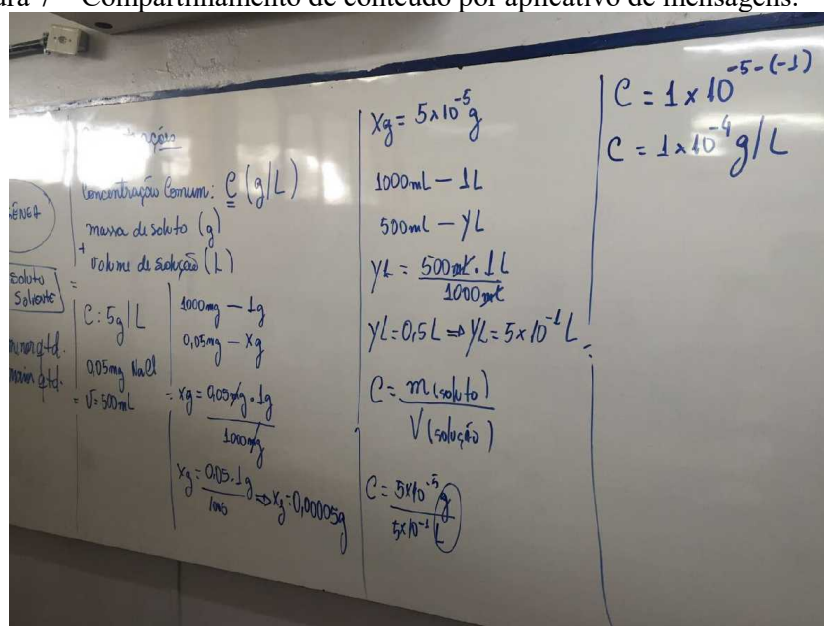 Compartilhamento de conteúdo por aplicativo de mensagens.
Soluto
Solvente
Concentração Comum: C (g/L)
massa de soluto (g)
+
volume de solução (L)
C: 5g/L
0,05mg NaCl
V= 500mL
1000mg — 1g
0,05mg — Xg
Xg = 0,05mg . 1g
1000mg
Xg = 0,05.1g ⇒ Xg = 0,00005g
Xg = 5x10⁻⁵g
1000mL — 1L
500mL — YL
YL = 500mL . 1L
1000mL
YL = 0,5L ⇒ YL = 5x10⁻¹L
C = m(soluto)
V(solução)
C = 5x10⁻⁵g
5x10⁻¹L
C = 1x10⁻⁵⁻⁽⁻¹⁾
C = 1x10⁻⁴g/L